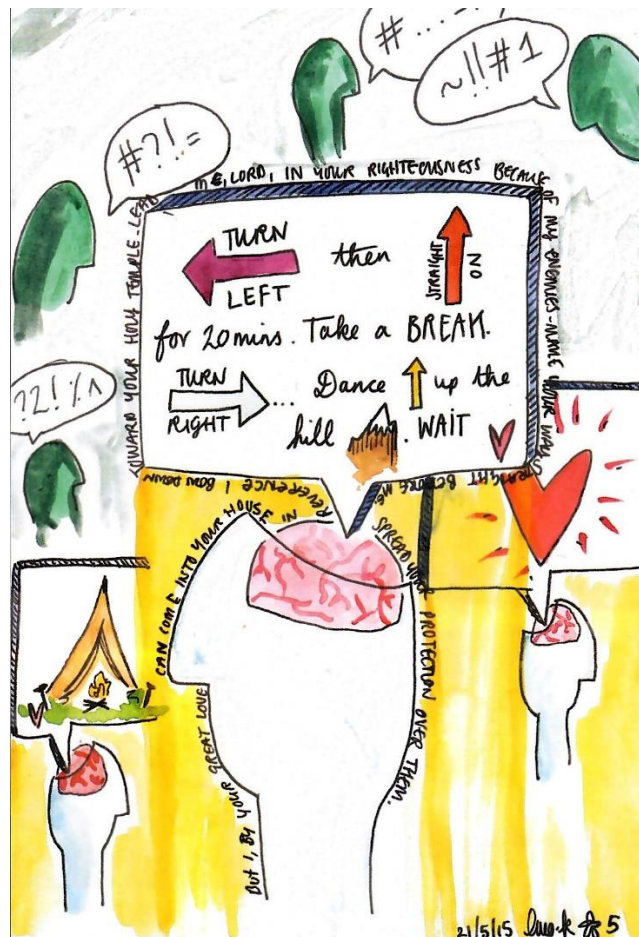 #...-
~!!#1
#?!.=
?2!%^
TURN
LEFT
then
STRAIGHT
NO
for 20 mins. Take a BREAK.
TURN
RIGHT
... Dance up the
hill . WAIT
But I, BY YOUR GREAT LOVE
CAN COME INTO YOUR HOUSE IN
REVERENCE I BOW DOWN
TOWARD YOUR HOLY TEMPLE. LEAD
ME, LORD, IN YOUR RIGHTEOUSNESS BECAUSE
OF MY ENEMIES - MAKE YOUR WAY
STRAIGHT BEFORE ME.
SPREAD YOUR PROTECTION OVER THEM.
21/5/15
5